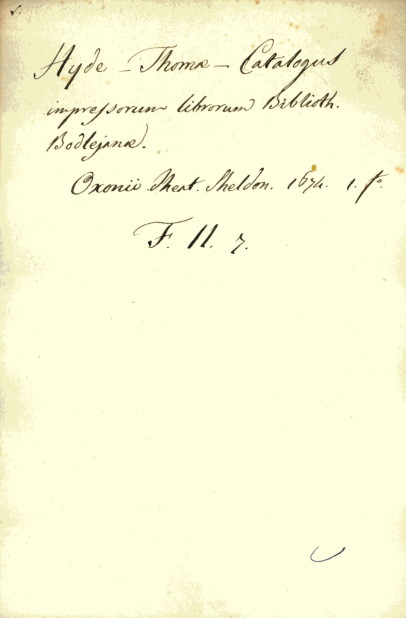 Hyde - Thomæ - Catalogus
impressorum librorum Biblioth.
Bodlejanæ.
Oxonii Theat. Sheldon. 1674. 1. fo.
F. II. 7.